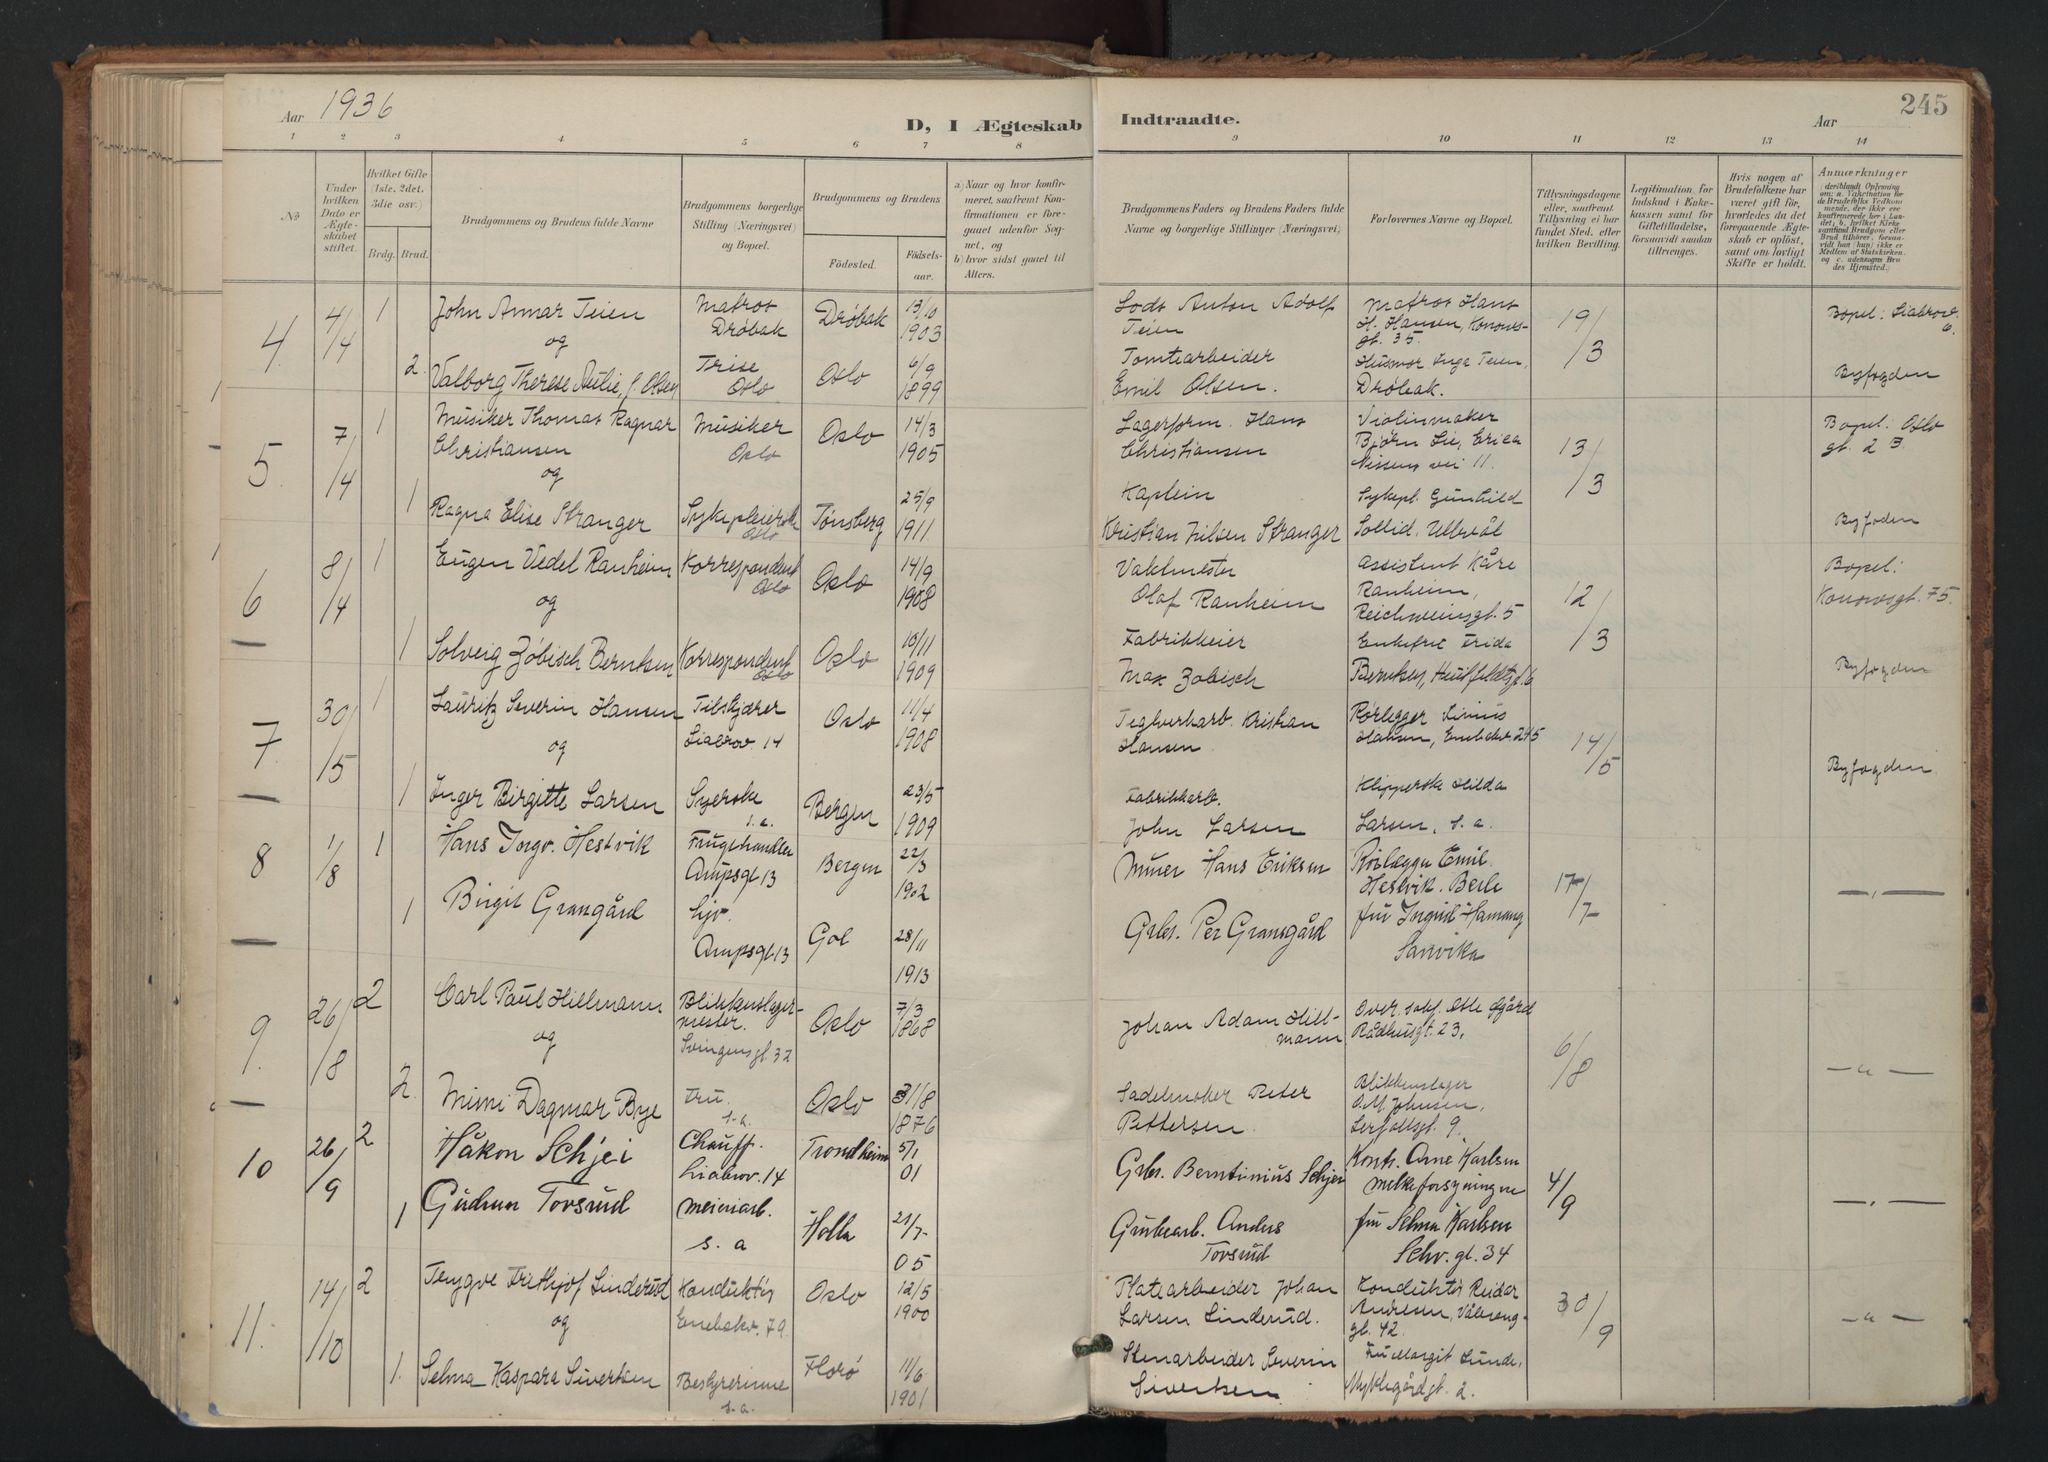 Aar 1936
D, I Ægteskab
Indtraadte.
Aar
245
1 2 3 4 5 6 7 8 9 10 11 12 13 14
No
Under hvilken Dato er Ægteskabet stiftet.
Hvilket Gifte (1ste, 2det, 3die osv.)
Brdg. Brud.
Brudgommens og Brudens fulde Navne
Brudgommens borgerlige Stilling (Næringsvei) og Bopæl.
Brudgommens og Brudens
Fødested.
Fødselsaar.
a) Naar og hvor konfirmeret, saafremt Konfirmationen er foregaaet udenfor Sognet, og
b) hvor sidst gaaet til Alters.
Brudgommens Faders og Brudens Faders fulde Navne og borgerlige Stillinger (Næringsvei)
Forlovernes Navne og Bopæl.
Tillysningsdagene eller, saafremt Tillysning ei har fundet Sted, efter hvilken Bevilling.
Legitimation for Indskud i Enkekassen samt for Giftetilladelse, forsaavidt saadan tiltrænges.
Hvis nogen af Brudefolkene har været gift før, hvorledes da det foregaaende Ægteskab er opløst, samt om lovligt Skifte er holdt.
Anmærkninger
4. 4/4 1 John Annar Teien Matros Drøbak Drøbak 13/10 1903
Lods Anton Adolf Teien
Matros Hans H. Hansen, Konowsgt. 35. 19/3
Bopel: Liabrov. 6.
og
2. Valborg Therese Aulie, f. Olsen Frise Oslo Oslo 6/9 1899
Tomtearbeider Emil Olsen.
Husmor Inga Teien, Drøbak.
Byfogden
5. 7/4 1 Musiker Thomas Ragnar Christiansen Musiker Oslo Oslo 14/3 1905
Lagerform. Hans Christiansen
Violinmaker Bjørn Lie, Erica Nissens vei 11. 13/3
Bopel: Oslo gt. 2 B
og
1 Ragna Elise Stranger Sykepleierske Oslo Tønsberg 25/9 1911
Kaptein Kristian Nilsen Stranger
Sykepl. Gunhild Sollid, Ullevål
Byfoden
6 8/4 1 Eugen Vedel Ranheim Korrespondent Oslo Oslo 14/9 1908
Vaktmester Olaf Ranheim
Assistent Kåre Ranheim, Reichweinsgt. 5 12/3
Bopel: Konowsgt. 75.
og
1 Solveig Zøbisch Berntsen Korrespondent Oslo Oslo 10/11 1909
Fabrikkeier Max Zobisch
Enkefru Frida Berntsen, Huitfeldtsgt. 6
Byfogden
7. 30/5 1 Lauritz Severin Hansen Tilskjærer Liabrov. 14 Oslo 11/4 1908
Teglverkarb. Kristian Hansen
Rørlegger Sinius Hansen, Enebakv. 245 14/5
og
1 Inger Birgitte Larsen Syerske s.a. Bergen 23/5 1909
Fabrikkarb. John Larsen
Klipperske Hilda Larsen, s.a.
Byfogden
8 1/8 1 Hans Ingv. Hestvik Arupsgt 13 Bergen 22/3 1902
Murer Hans Eriksen
Rørlegger Emil Hestvik. 17/7
— " —
1 Birgit Grønsgård Arupsgt 13 Gol 28/11 1913
Gbr. Per Grønsgård
fru Ingrid Hamang Sanvika
9. 26/8 2 Carl Paul Hillmann Blikkenslagermester. Svingensgt. 32 Oslo 7/3 1868
Johan Adam Hillmann
Rådhusgt. 23, 6/8
og
2 Mimi Dagmar Bye Fru. s.a. Oslo 31/8 1876
Sadelmaker Peter Pettersen
Blikkenslager O.M. Johnsen,
— " —
10 26/9 2 Håkon Schjei Chauff. Liabrov. 14 Trondheim 5/1 01
Gbr. Berntinius Schjei
Kontr. Arne Karlsen melkeforsyningen 4/9
— " —
1 Gudrun Torsrud meieriarb. s. a Holla 21/7 05
Grubearb. Anders Torsrud
fru Selma Karlsen Schv. gt. 34
11. 14/10 2 Trygve Frithjof Linderud Konduktør Enebakv. 79. Oslo 12/5 1900
Platearbeider Johan Larsen Linderud.
Konduktør Reidar Andresen, Vålerenggt. 42. 30/9
— " —
og
1. Selma Kaspara Sivertsen Bestyrerinne s.a. Florø 11/6 1901
Stenarbeider Severin Sivertsen
Fru Margit Lunde, Myklegårdgt. 2.